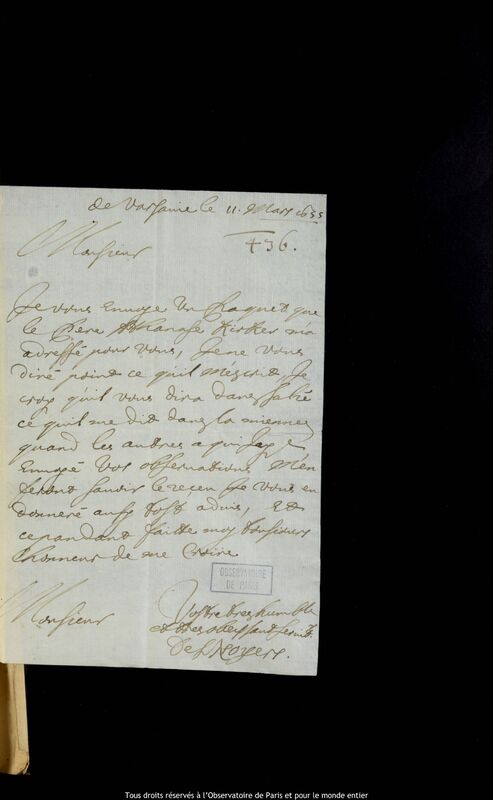 de Varsavie le 11. Mars 1655
436.
Monsieur
Je vous envoye un Paquet que
le Pere Athanase Kirker m'a
adressé pour vous, Je ne vous
diré point ce qu'il m'éscrit, Je
croy qu'il vous dira dans la
ce qu'il me dit dans la mienne,
quand les autres a qui J'ay
envoyé vos observations m'en
feront sauoir le receu Je vous en
donneré aussy tost aduis, Et
cepandant faitte moy tousiours
l'honneur de me Croire
OBSERVATOIRE
DE PARIS
Monsieur
Vostre tres humble
et tres obeissant seruit.
Des Noyers.
Tous droits réservés à l'Observatoire de Paris et pour le monde entier